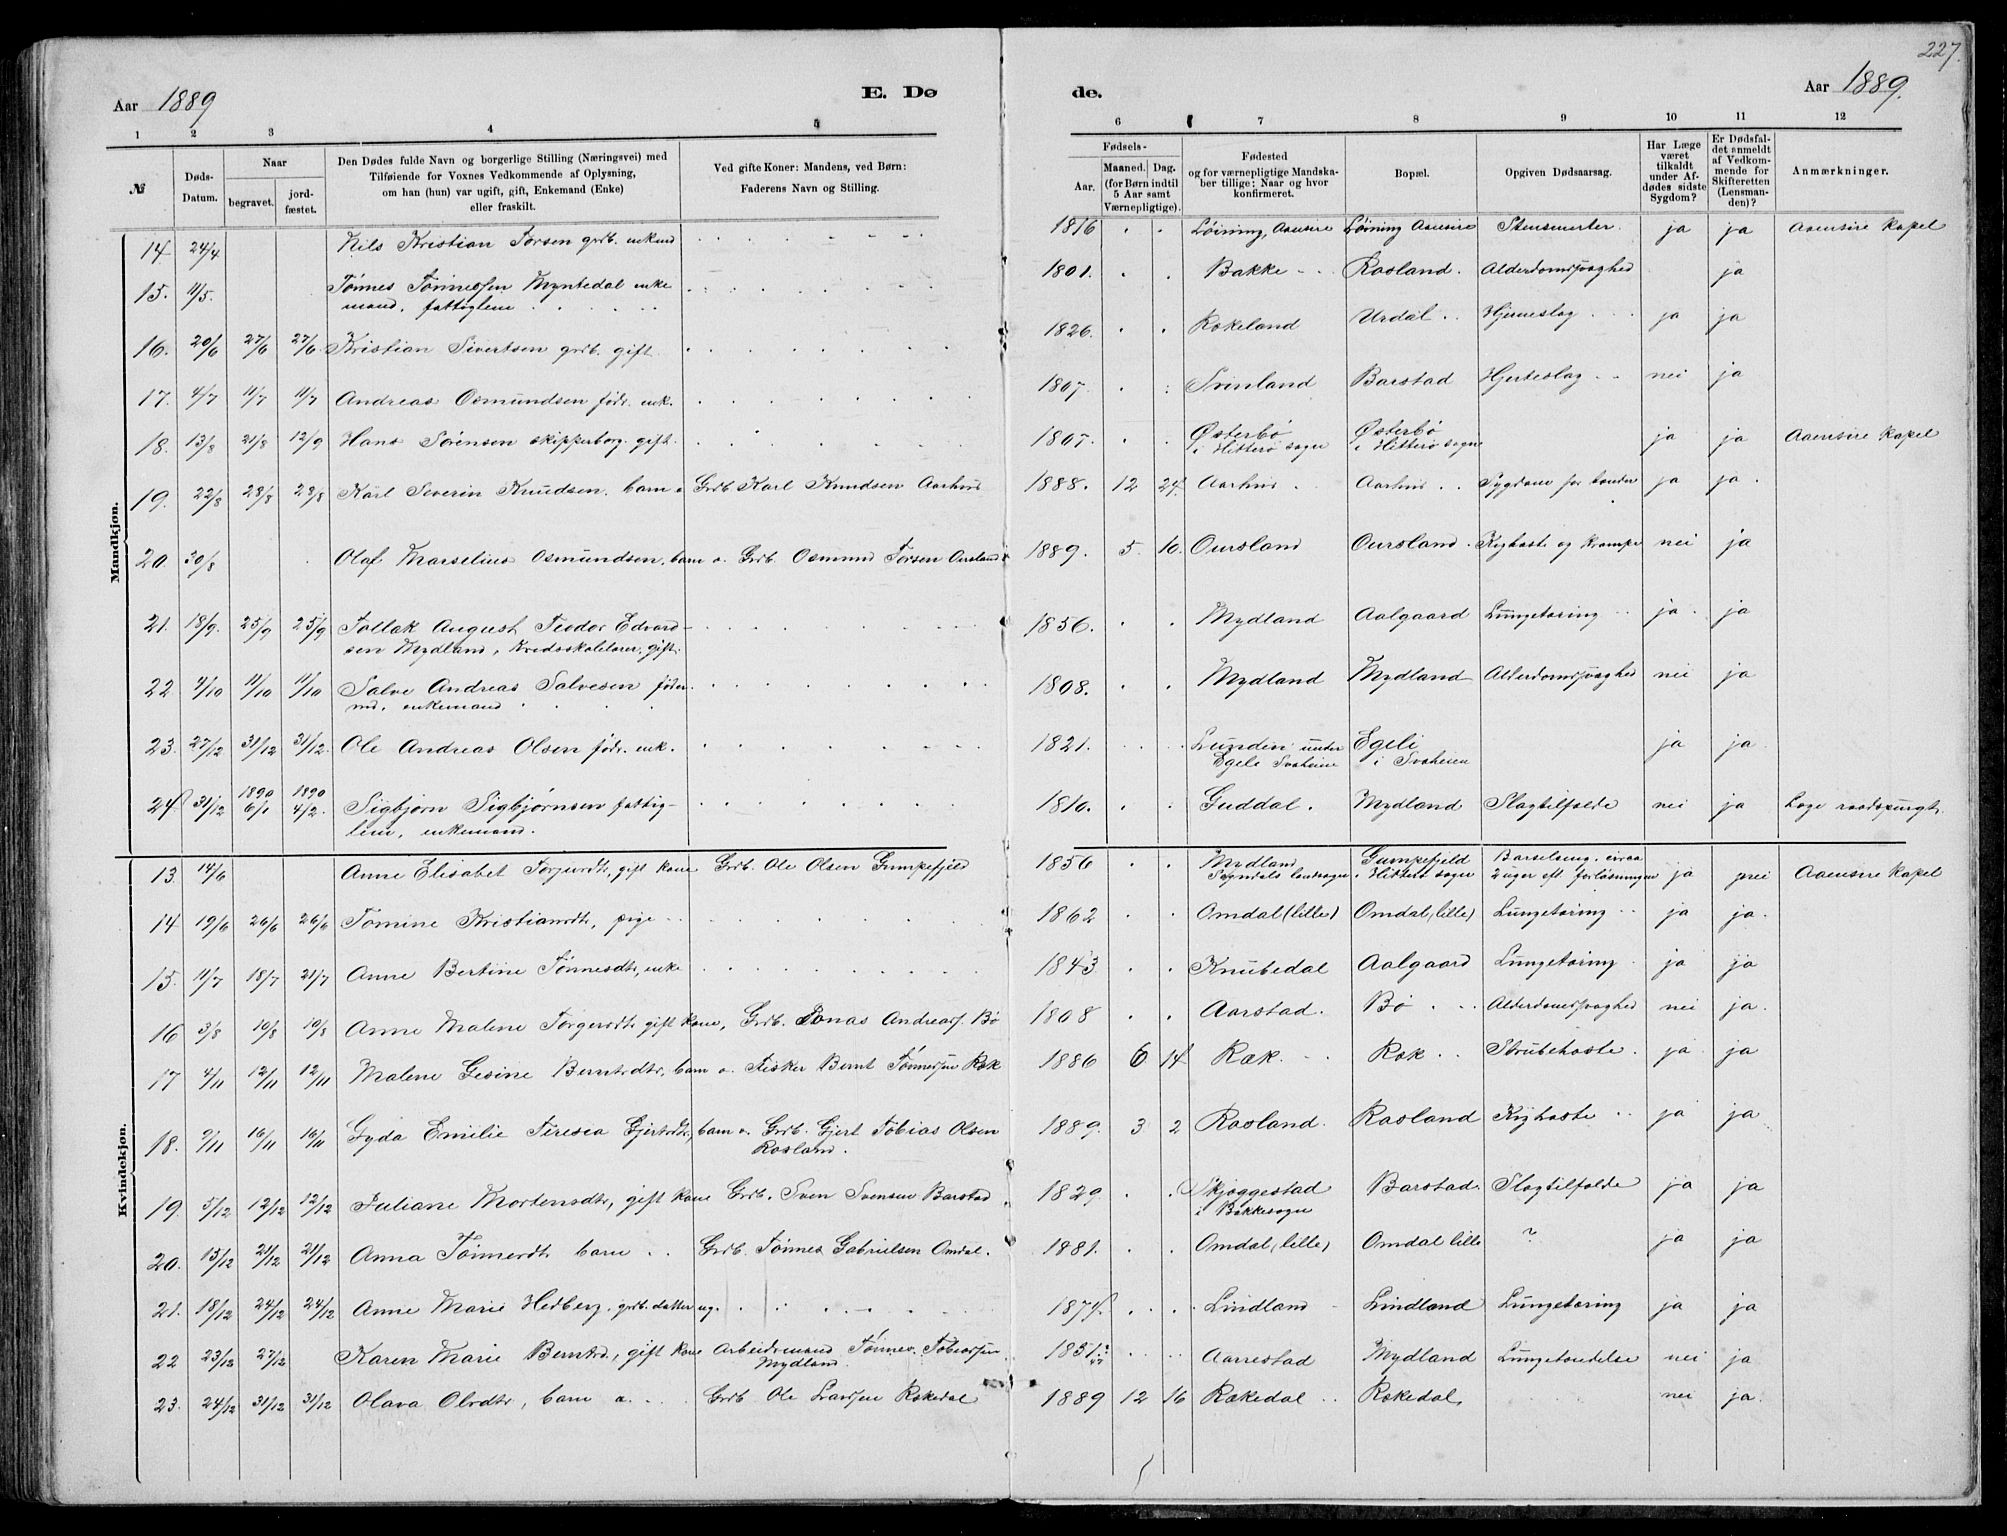 227.
Aar 1889
E. Dø
de.
Aar 1889.
1 2 3 4 5 6 7 8 9 10 11 12
№
Døds-Datum.
Naar
begravet.
jordfæstet.
Den Dødes fulde Navn og borgerlige Stilling (Næringsvei) med
Tilføiende for Voxnes Vedkommende af Oplysning,
om han (hun) var ugift, gift, Enkemand (Enke)
eller fraskilt.
Ved gifte Koner: Mandens, ved Børn:
Faderens Navn og Stilling.
Fødsels-
Aar.
Maaned. Dag.
(for Børn indtil
5 Aar samt
Værnepligtige).
Fødested
og for værnepligtige Mandska-
ber tillige: Naar og hvor
konfirmeret.
Bopæl.
Opgiven Dødsaarsag.
Har Læge
været
tilkaldt
under Af-
dødes sidste
Sygdom?
Er Dødsfal-
det anmeldt
af Vedkom-
mende for
Skifteretten
(Lensman-
den)?
Anmærkninger.
Mandkjøn.
14 24/4 Nils Kristian Torsen grdb. enkmd 1816 Løining, Aaensire Løining Aaensire ja ja Aaensire Kapel
15. 11/5. Tønnes Tønnessen Myntedal enke
mand, fattiglem 1801. Bakke Rosland. Alderdomssvaghed ja
16. 20/6 27/6 27/6. Kristian Sivertsen grdb. gift. 1826. Rekeland Urdal Hjerneslag ja ja
17. 4/7 11/7 11/7 Andreas Osmundsen fødr. enk. 1807. Svinland Barstad Hjerteslag nei ja
18. 13/8 21/8 12/9 Hans Sørensen skipperborg. gift. 1807. Østerbø
i Hitterø sogn Østerbø
i Hitterø sogn ja ja Aaensire Kapel
19. 22/8 28/8 28/8 Karl Severin Knudsen. barn a Grdb Karl Knudsen Aarhus 1888. 12 24. Aarhus Aarhus Sygdom for tænder ja ja
20 30/8 Olaf Marselius Osmundsen, barn a. Grdb. Osmund Torsen Oursland 1889. 5. 10. Oursland Oursland Kighoste og krampe nei ja
21. 18/9. 25/9 25/9 Tollak August Teodor Edvard-
sen Mydland, Kredsskolelærer, gift. 1856. Mydland Aalgaard Lungetæring ja ja
22 4/10 11/10 11/10 Salve Andreas Salvesen føder
md, enkemand 1808. Mydland Mydland Alderdomssvaghed nei ja
23. 27/12 31/12 31/12. Ole Andreas Olsen fødr. enk. 1821. Lunden under
Egeli Svaheie Egeli
i Svaheien ja ja
24 31/12 1890
6/1 1890
4/2. Sigbjørn Sigbjørnsen fattig-
lem, enkemand. 1810. Guddal. Mydland Slagtilfælde nei ja Læge raadspurgt.
Kvindekjøn.
13. 14/6 Anne Elisabet Torjusdt, gift kone Grdb. Ole Olsen Gumpefjeld 1856 Mydland
Sogndals landsogn Gumpefjeld
i Hitterø sogn Barselseng. circa
2 uger eft. forløsningen ja nei Aaensire Kapel
14 19/6 26/6 26/6 Tomine Kristiansdt, pige 1862 Omdal (lille) Omdal (lille) Lungetæring ja ja.
15. 11/7 18/7 21/7 Anne Bertine Tønnesdtr, enke 1843 Knubedal Aalgaard Lungetæring ja ja
16 3/8 10/8 10/8 Anne Malene Torgersdt gift kone, Grdb. Jonas Andreass. Bø 1808 Aarstad. Bø Alderdomssvaghed nei ja.
17 4/11 12/11 12/11 Malene Gesine Berntsdtr, barn a. Fisker Bernt Tønnessen Ræk 1886 6 14 Ræk. Ræk Strubehoste. ja ja
18. 9/11 16/11 16/11 Gyda Emilie Teresia Gjertsdtr, barn a. Grdb. Gjert Tobias Olsen
Rosland. 1889. 3 2 Rosland. Rosland Kighoste ja ja
19. 5/12 12/12 12/12 Juliane Mortensdtr, gift kone Grdb. Sven Svensen Barstad 1829. Skjeggestad
i Bakkesogn Barstad. Slagtilfælde ja ja
20. 15/12 21/12 21/12 Anna Tønnesdt barn Grdb. Tønnes Gabrielsen Omdal. 1881. Omdal (lille) Omdal lille ? ja ja
21. 18/12 24/12 24/12 Anne Marie Hedberg. grdb. datter ug. 1874. Lindland Lindland Lungetæring ja ja
22 23/12 27/12 Karen Marie Berntsd, gift kone Arbeidsmand Tønnes Tobiassen
Mydland 1851. Aarrestad Mydland Lungebetændelse nei ja
23. 24/12 31/12 31/12 Olava Olsdtr, barn a. Grdb Ole Larssen Rekedal 1889 12 16 Rekedal Rekedal. nei ja.